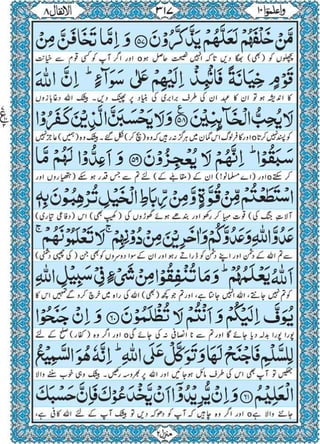 واعلموا ١٠ ٣١٧ الانفال ٨
مَّنْ خَلْفَهُمْ لَعَلَّهُمْ يَذَّكَّرُوْنَ ﴿۵۷﴾ وَ اِمَّا تَخَافَنَّ مِنْ
پچھلوں کو (بھی) بھگا دیں تاکہ انہیں نصیحت حاصل ہو o اور اگر آپ کو کسی قوم سے خیانت
قَوْمٍ خِيَانَةً فَانْۢبِذْ اِلَيْهِمْ عَلٰى سَوَآءٍ ؕ اِنَّ اللّٰهَ
کا اندیشہ ہو تو ان کا عہد ان کی طرف برابری کی بنیاد پر پھینک دیں۔ بیشک اللہ دغابازوں
لَا يُحِبُّ الْخَآئِنِيْنَ ﴿۵۸﴾ وَلَا يَحْسَبَنَّ الَّذِيْنَ كَفَرُوْا
کو پسند نہیں کرتا o اور کافر لوگ اس گمان میں ہرگز نہ رہیں کہ وہ (بچ کر) نکل گئے۔ بیشک وہ (ہمیں) عاجز نہیں
سَبَقُوْا ؕ اِنَّهُمْ لَا يُعْجِزُوْنَ ﴿۵۹﴾ وَ اَعِدُّوْا لَهُمْ مَّا
کر سکتے o اور (اے مسلمانو!) ان کے (مقابلے کے) لئے تم سے جس قدر ہو سکے (ہتھیاروں اور
اسْتَطَعْتُمْ مِّنْ قُوَّةٍ وَّ مِنْ رِّبَاطِ الْخَيْلِ تُرْهِبُوْنَ بِهٖ
آلاتِ جنگ کی) قوت مہیا کر رکھو اور بندھے ہوئے گھوڑوں کی (کھیپ بھی) اس (دفاعی تیاری)
عَدُوَّ اللّٰهِ وَعَدُوَّكُمْ وَاٰخَرِيْنَ مِنْ دُوْنِهِمْ ۚ لَا تَعْلَمُوْنَهُمْ ۚ
سے تم اللہ کے دشمن اور اپنے دشمن کو ڈراتے رہو اور ان کے سوا دوسروں کو بھی جن (کی چھپی دشمنی)
اَللّٰهُ يَعْلَمُهُمْ ؕ وَمَا تُنْفِقُوْا مِنْ شَىْءٍ فِىْ سَبِيْلِ اللّٰهِ
کو تم نہیں جانتے، اللہ انہیں جانتا ہے، اور تم جو کچھ (بھی) اللہ کی راہ میں خرچ کرو گے تمہیں اس کا
يُوَفَّ اِلَيْكُمْ وَ اَنْتُمْ لَا تُظْلَمُوْنَ ﴿۶۰﴾ وَ اِنْ جَنَحُوْا
پورا پورا بدلہ دیا جائے گا اور تم سے نا انصافی نہ کی جائے گی o اور اگر وہ (کفار) صلح کے لئے
لِلسَّلْمِ فَاجْنَحْ لَهَا وَتَوَكَّلْ عَلَى اللّٰهِ ؕ اِنَّهٗ هُوَ السَّمِيْعُ
جھکیں تو آپ بھی اس کی طرف مائل ہو جائیں اور اللہ پر بھروسہ رکھیں۔ بیشک وہی خوب سننے والا
الْعَلِيْمُ ﴿۶۱﴾ وَ اِنْ يُّرِيْدُوْۤا اَنْ يَّخْدَعُوْكَ فَاِنَّ حَسْبَكَ
جاننے والا ہے o اور اگر وہ چاہیں کہ آپ کو دھوکہ دیں تو بیشک آپ کے لئے اللہ کافی ہے،
منزل ٢